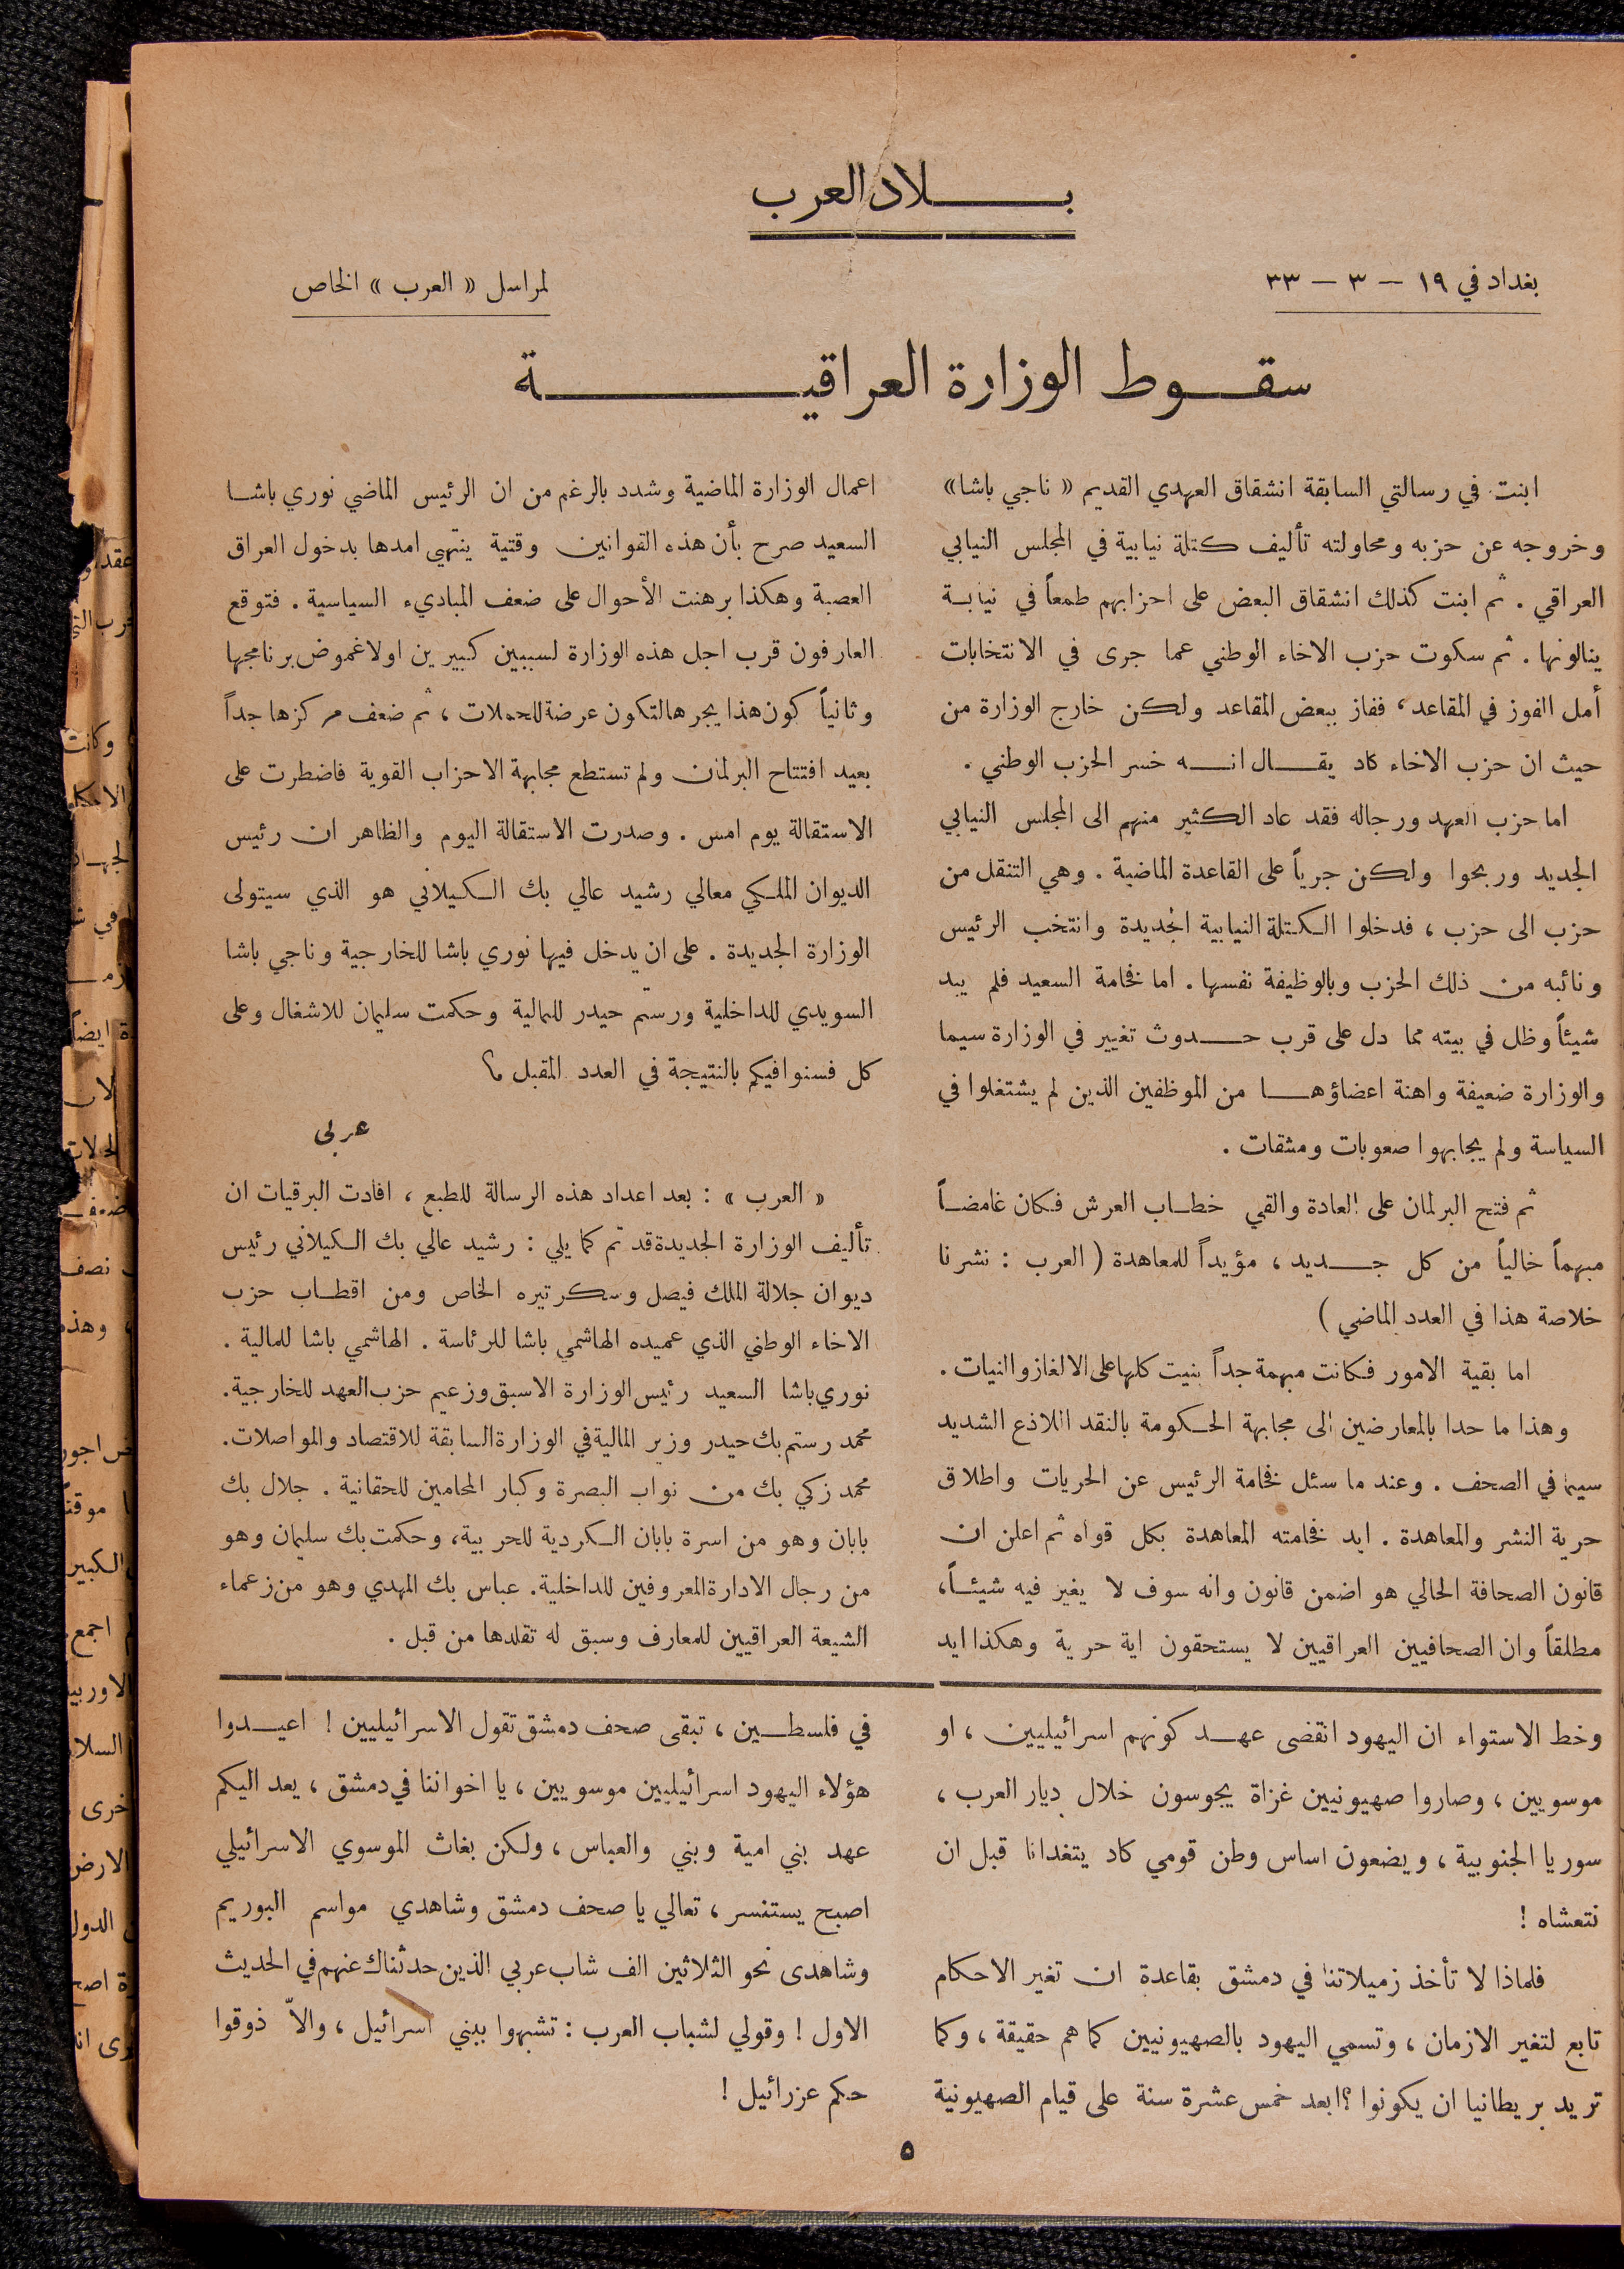 بلاد العرب
بغداد في ١٩ — ٣ — ٣٣
لمراسل « العرب » الخاص
سقوط الوزارة العراقية
ابنت في رسالتي السابقة انشقاق العهدي القديم « ناجي باشا»
وخروجه عن حزبه ومحاولته تأليف كتلة نيابية في المجلس النيابي
العراقي . ثم ابنت كذلك انشقاق البعض على احزابهم طمعاً في نيابة
ينالونها . ثم سكوت حزب الاخاء الوطني عما جرى في الانتخابات
أمل الفوز في المقاعد ، ففاز ببعض المقاعد ولكن خارج الوزارة من
حيث ان حزب الاخاء كاد يقال انه خسر الحزب الوطني .
اما حزب العهد ورجاله فقد عاد الكثير منهم الى المجلس النيابي
الجديد وربحوا ولكن جرياً على القاعدة الماضية . وهي التنقل من
حزب الى حزب ، فدخلوا الكتلة النيابية الجديدة وانتخب الرئيس
ونائبه من ذلك الحزب وبالوظيفة نفسها . اما فخامة السعيد فلم يبد
شيئاً وظل في بيته مما دل على قرب حدوث تغيير في الوزارة سيما
والوزارة ضعيفة واهنة اعضاؤها من الموظفين الذين لم يشتغلوا في
السياسة ولم يجابهوا صعوبات ومشقات .
ثم فتح البرلمان على العادة والقي خطاب العرش فكان غامضاً
مبهماً خالياً من كل جديد ، مؤيداً للمعاهدة ( العرب : نشرنا
خلاصة هذا في العدد الماضي )
اما بقية الامور فكانت مبهمة جداً بنيت كلها على الالغاز والنيات .
وهذا ما حدا بالمعارضين الى مجابهة الحكومة بالنقد اللاذع الشديد
سيما في الصحف . وعند ما سئل فخامة الرئيس عن الحريات واطلاق
حرية النشر والمعاهدة . ايد فخامته المعاهدة بكل قواه ثم اعلن ان
قانون الصحافة الحالي هو اضمن قانون وانه سوف لا يغير فيه شيئاً،
مطلقاً وان الصحافيين العراقيين لا يستحقون اية حرية وهكذا ايد
اعمال الوزارة الماضية وشدد بالرغم من ان الرئيس الماضي نوري باشا
السعيد صرح بأن هذه القوانين وقتية ينتهي امدها بدخول العراق
العصبة وهكذا برهنت الأحوال على ضعف المباديء السياسية . فتوقع
العارفون قرب اجل هذه الوزارة لسببين كبيرين اولا غموض برنامجها
وثانياً كون هذا يجرها لتكون عرضة للحملات ، ثم ضعف مركزها جداً
بعيد افتتاح البرلمان ولم تستطع مجابهة الاحزاب القوية فاضطرت على
الاستقالة يوم امس . وصدرت الاستقالة اليوم والظاهر ان رئيس
الديوان الملكي معالي رشيد عالي بك الكيلاني هو الذي سيتولى
الوزارة الجديدة . على ان يدخل فيها نوري باشا للخارجية وناجي باشا
السويدي للداخلية ورستم حيدر للمالية وحكمت سليمان للاشغال وعلى
كل فسنوافيكم بالنتيجة في العدد المقبل ؟
عربي
« العرب » : بعد اعداد هذه الرسالة للطبع ، افادت البرقيات ان
تأليف الوزارة الجديدة قد تم كما يلي : رشيد عالي بك الكيلاني رئيس
ديوان جلالة الملك فيصل وسكرتيره الخاص ومن اقطاب حزب
الاخاء الوطني الذي عميده الهاشمي باشا للرئاسة . الهاشمي باشا للمالية .
نوري باشا السعيد رئيس الوزارة الاسبق وزعيم حزب العهد للخارجية.
محمد رستم بك حيدر وزير المالية في الوزارة السابقة للاقتصاد والمواصلات.
محمد زكي بك من نواب البصرة وكبار المحامين للحقانية . جلال بك
بابان وهو من اسرة بابان الكردية للحربية، وحكمت بك سليمان وهو
من رجال الادارة المعروفين للداخلية. عباس بك المهدي وهو من زعماء
الشيعة العراقيين للمعارف وسبق له تقلدها من قبل .
وخط الاستواء ان اليهود انقضى عهد كونهم اسرائيليين ، او
موسويين ، وصاروا صهيونيين غزاة يجوسون خلال ديار العرب ،
سوريا الجنوبية ، ويضعون اساس وطن قومي كاد يتغدانا قبل ان
نتعشاه !
فلماذا لا تأخذ زميلاتنا في دمشق بقاعدة ان تغير الاحكام
تابع لتغير الازمان ، وتسمي اليهود بالصهيونيين كما هم حقيقة ، وكما
تريد بريطانيا ان يكونوا ؟ ابعد خمس عشرة سنة على قيام الصهيونية
في فلسطين ، تبقى صحف دمشق تقول الاسرائيليين ! اعيدوا
هؤلاء اليهود اسرائيليين موسويين ، يا اخواننا في دمشق ، يعد اليكم
عهد بني امية وبني والعباس ، ولكن بغاث الموسوي الاسرائيلي
اصبح يستنسر ، تعالي يا صحف دمشق وشاهدي مواسم البوريم
وشاهدى نحو الثلاثين الف شاب عربي الذين حدثناك عنهم في الحديث
الاول ! وقولي لشباب العرب : تشبهوا ببني اسرائيل ، والاّ ذوقوا
حكم عزرائيل !
٥